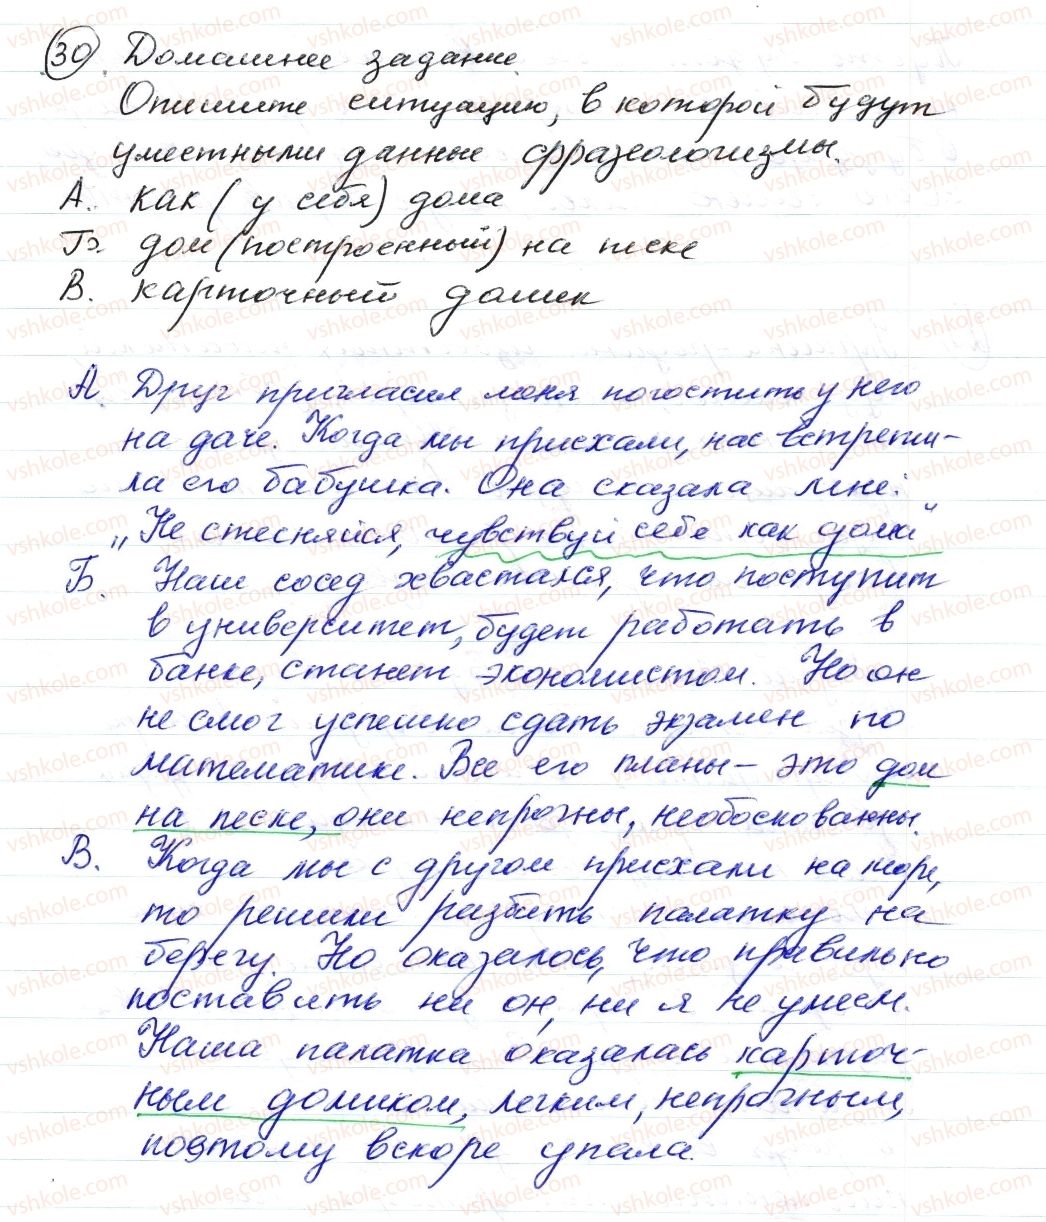 30. Домашнее задание.
Опишите ситуацию, в которой будут
уместными данные фразеологизмы.
А. как (у себя) дома
Б. дом (построенный) на песке
В. карточный домик
А. Друг пригласил меня погостить у него
на даче. Когда мы приехали, нас встрети-
ла его бабушка. Она сказала мне:
„Не стесняйся, чувствуй себе как дома"
Б. Наш сосед хвастался, что поступит
в университет, будет работать в
банке, станет экономистом. Но он
не смог успешно сдать экзамен по
математике. Все его планы – это дом
на песке, они непрочны, необоскованны.
В. Когда мы с другом приехали на море,
то решили разбить палатку на
берегу. Но оказалось, что правильно
поставить ни он, ни я не умеем.
Наша палатка оказалась карточ-
ным домиком, легким, непрочным,
поэтому вскоре упала.
vshkole.com